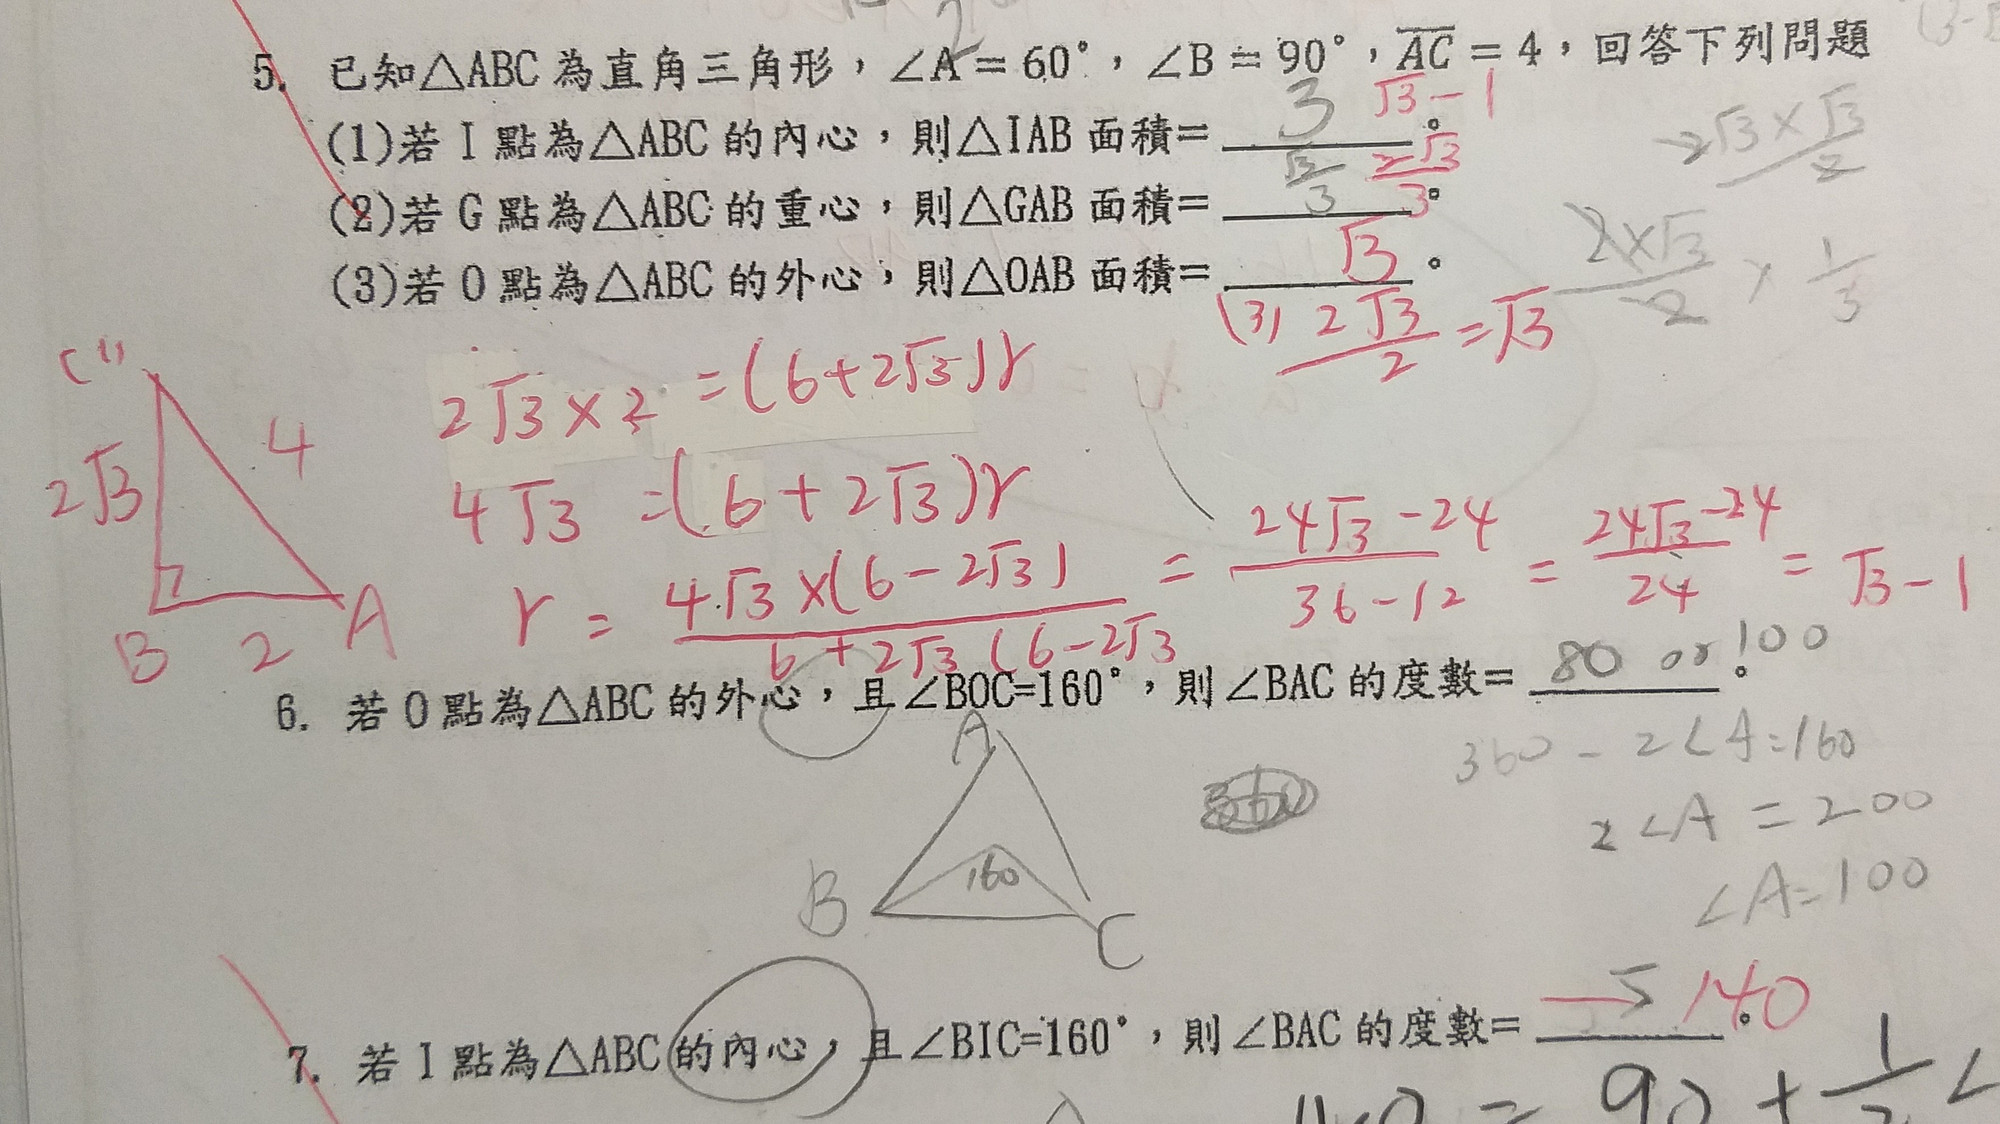 5. 已知△ABC為直角三角形，∠A=60°，∠B=90°，AC=4，回答下列問題
3 √3-1
(1)若 I 點為△ABC的內心，則△IAB面積=____。
√3/3 2√3/3
(2)若 G 點為△ABC的重心，則△GAB面積=____。
√3
(3)若 O 點為△ABC的外心，則△OAB面積=____。
2√3×√3/2
2×√3/2 × 1/3
(3) 2√3/2 =√3
(1)
2√3 4
B 2 A
2√3×2 =(6+2√3)r
4√3 =(6+2√3)r
r = 4√3×(6-2√3)/6+2√3(6-2√3 = 24√3-24/36-12 = 24√3-24/24 = √3-1
80 or 100
6. 若 O 點為△ABC的外心，且∠BOC=160°，則∠BAC的度數=____。
A
160
B C
360-2∠A=160
2∠A=200
∠A=100
140
7. 若 I 點為△ABC的內心，且∠BIC=160°，則∠BAC的度數=____。
= 90 + 1/2 ∠